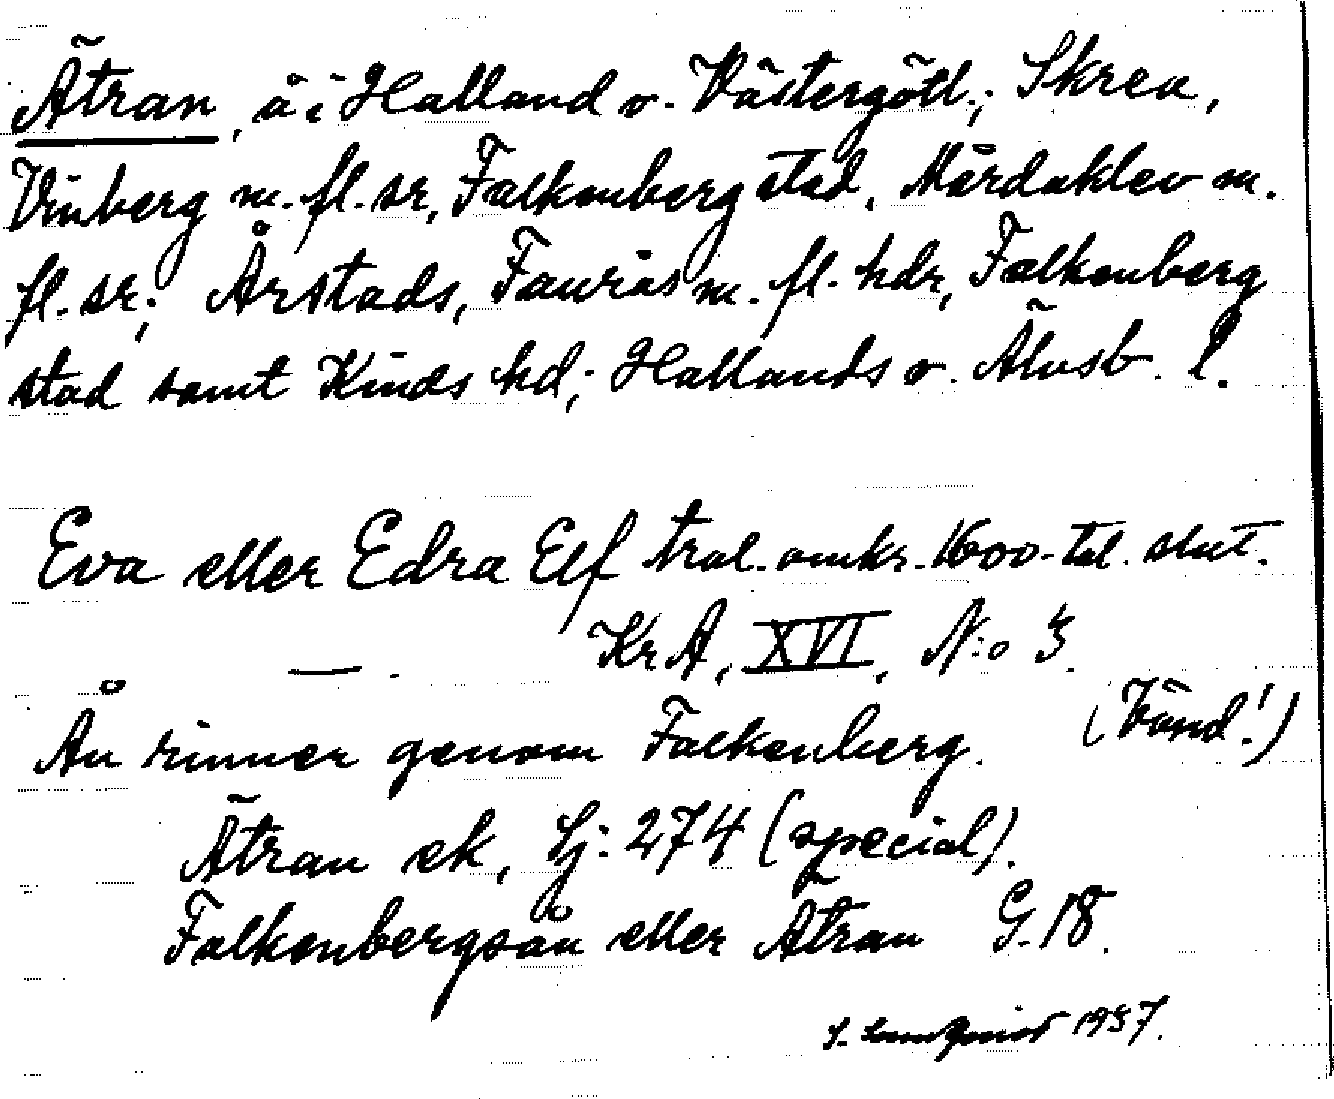 Ätran, å i Halland o. Västergötl.; Skrea,
Vinberg m. fl. sr, Falkenberg stad, Mårdaklev m.
fl. sr; Årstads, Faurås m. fl. hdr, Falkenberg
stad samt Kinds hd; Hallands o. Älvsb. l.
Eva eller Edra Elf trol. omkr. 1600-tal. slut.
KrA, XVI, N:o 3.
Ån rinner genom Falkenberg. (Vänd!)
Ätran ek, Lj: 274 (special).
Falkenbergsån eller Ätran G. 18.
1957.